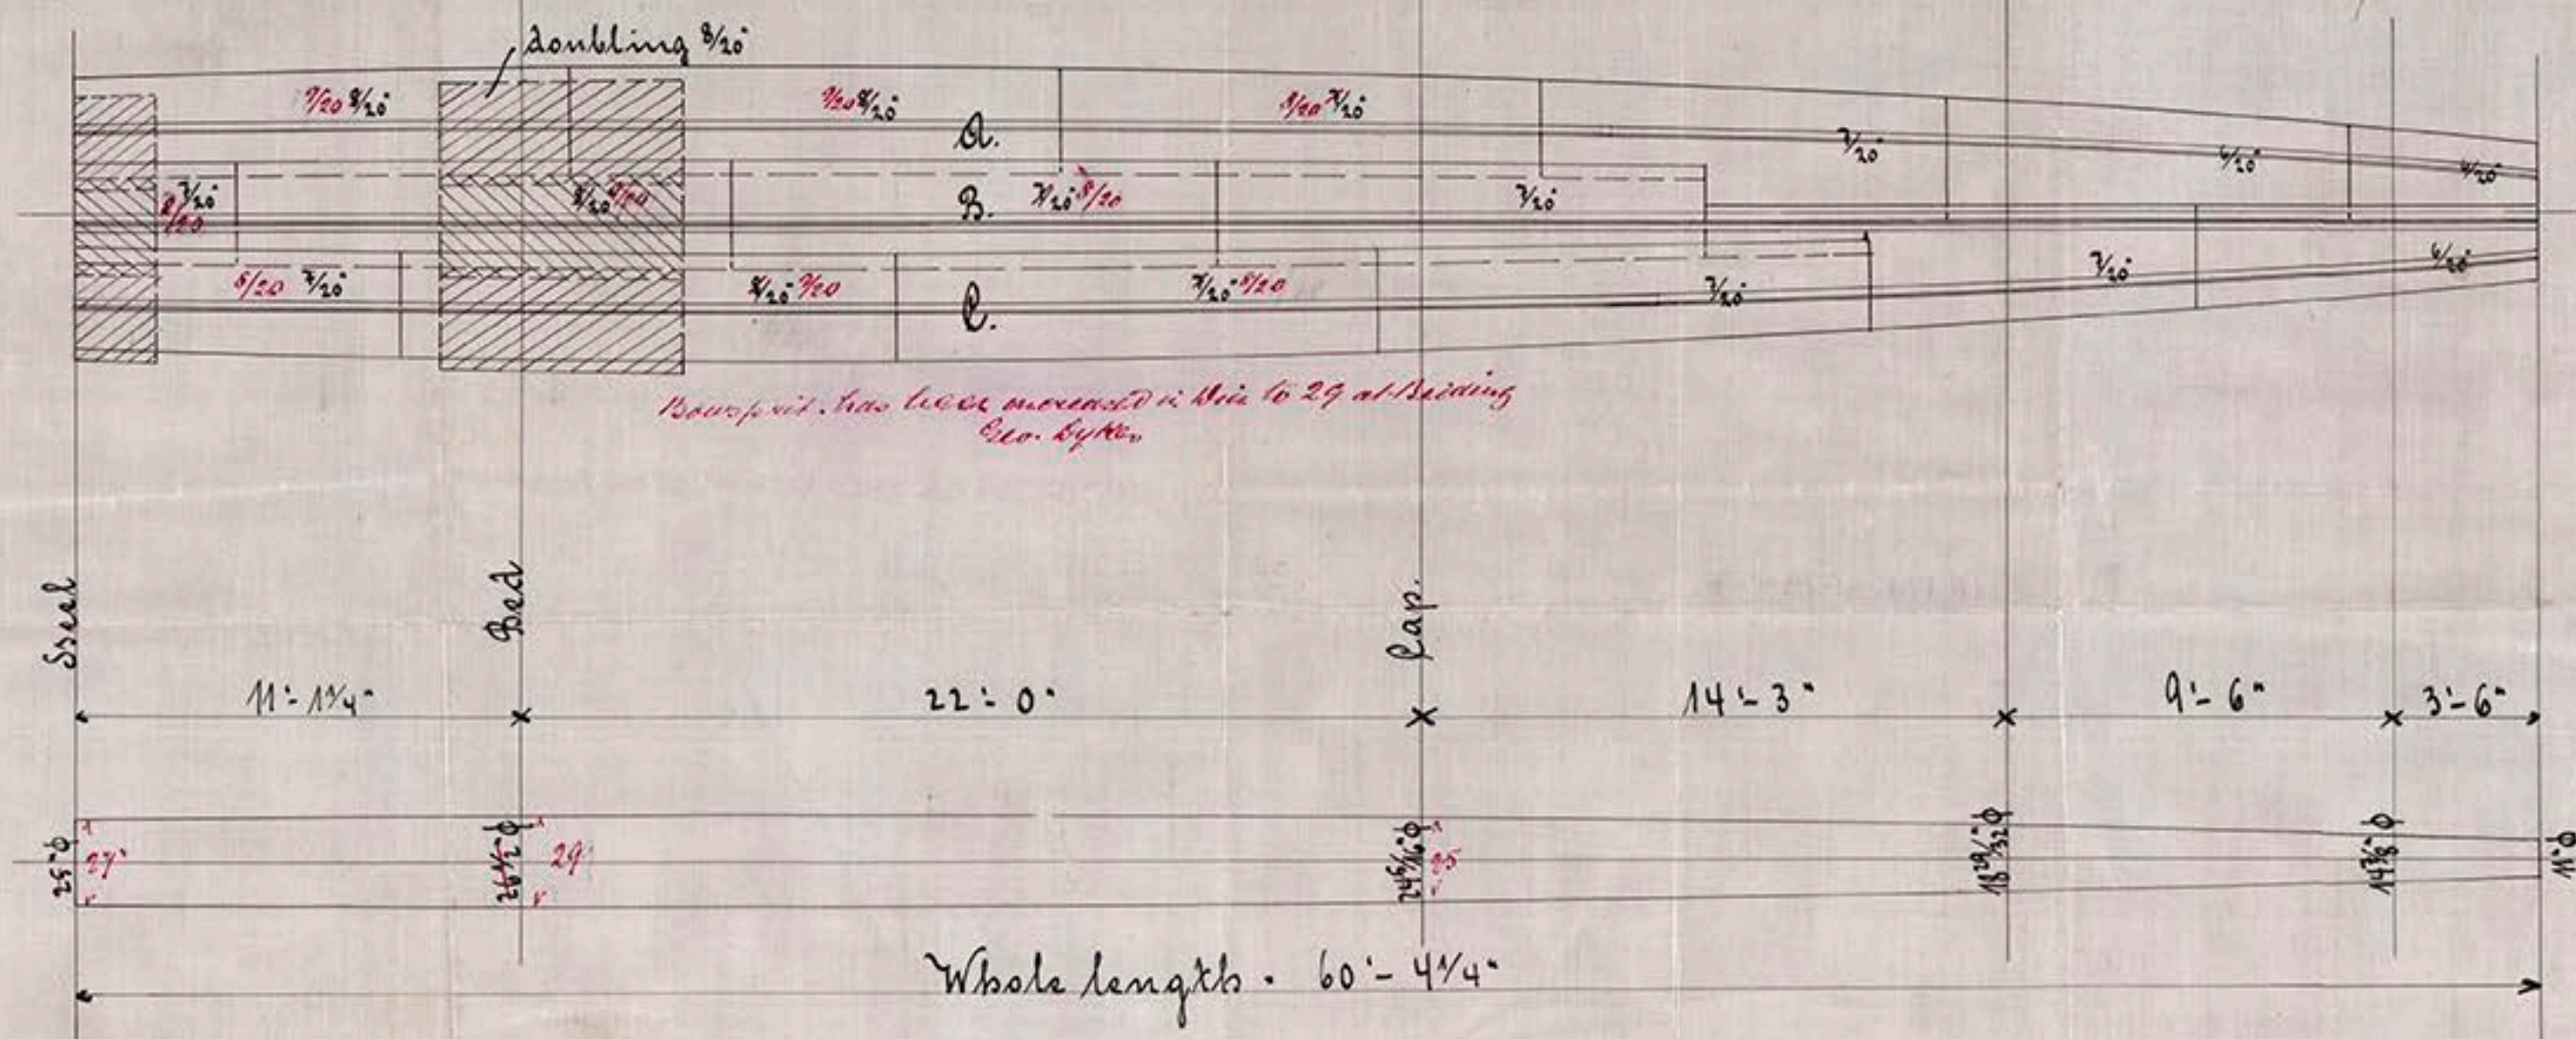 doubling 8/20"
9/20 8/20"
9/20 8/20"
8/20 7/20"
7/20"
6/20"
6/20"
A.
7/20"
8/20
8/20" 9/20
B.
7/20" 8/20
7/20"
8/20 7/20"
8/20" 9/20
C.
7/20" 8/20
7/20"
7/20"
6/20"
Bowsprit has been increased in Dia to 29 at Bedding
Geo. Dykes
Heel
Bed
Cap.
11'-1 1/4"
22'-0"
14'-3"
9'-6"
3'-6"
25"ϕ
27"
26 1/2"ϕ
29
24 5/16"ϕ
25
18 29/32"ϕ
14 3/8"ϕ
11"ϕ
Whole length. 60'-4 1/4"